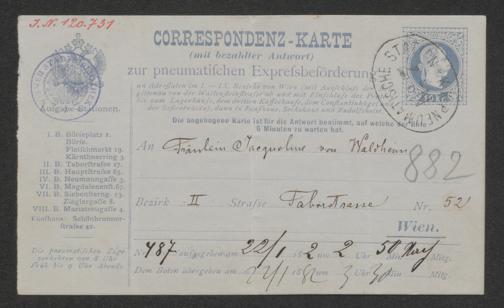 I. N. 120.731
CORRESPONDENZ-KARTE
(mit bezahlter Antwort)
zur pneumatischen Expressbeförderung
an Adressaten im I.—IX. Bezirke von Wien
Die angebogene Karte ist für die Antwort bestimmt, auf welche der Bote
6 Minuten zu warten hat.
Ausgabs-Stationen.
I. B. Börseplatz 1.
Börse.
Fleischmarkt 19.
Kärnthnerring 3.
II. B. Taborstraße 27.
III. B. Hauptstraße 65.
IV. B. Neumanngasse 3.
VI. B. Magdalenenst. 67.
VII. B. Siebensterng. 13.
Zieglergasse 8.
VIII. B. Mariatreugasse 4.
Fünfhaus: Schönbrunner-
straße 42.
Die pneumatischen Züge
verkehren von 8 Uhr
Früh bis 9 Uhr Abends.
An Fräulein Jacqueline von Waldheim
882
Bezirk II Straße Taborstrasse Nr. 52
Wien.
No. 787 aufgegeben am 22/1 1882 2 Uhr 50 Min. Mitg.
Dem Boten übergeben am 22/1 1882 3 Uhr 30 Min. Mitg.